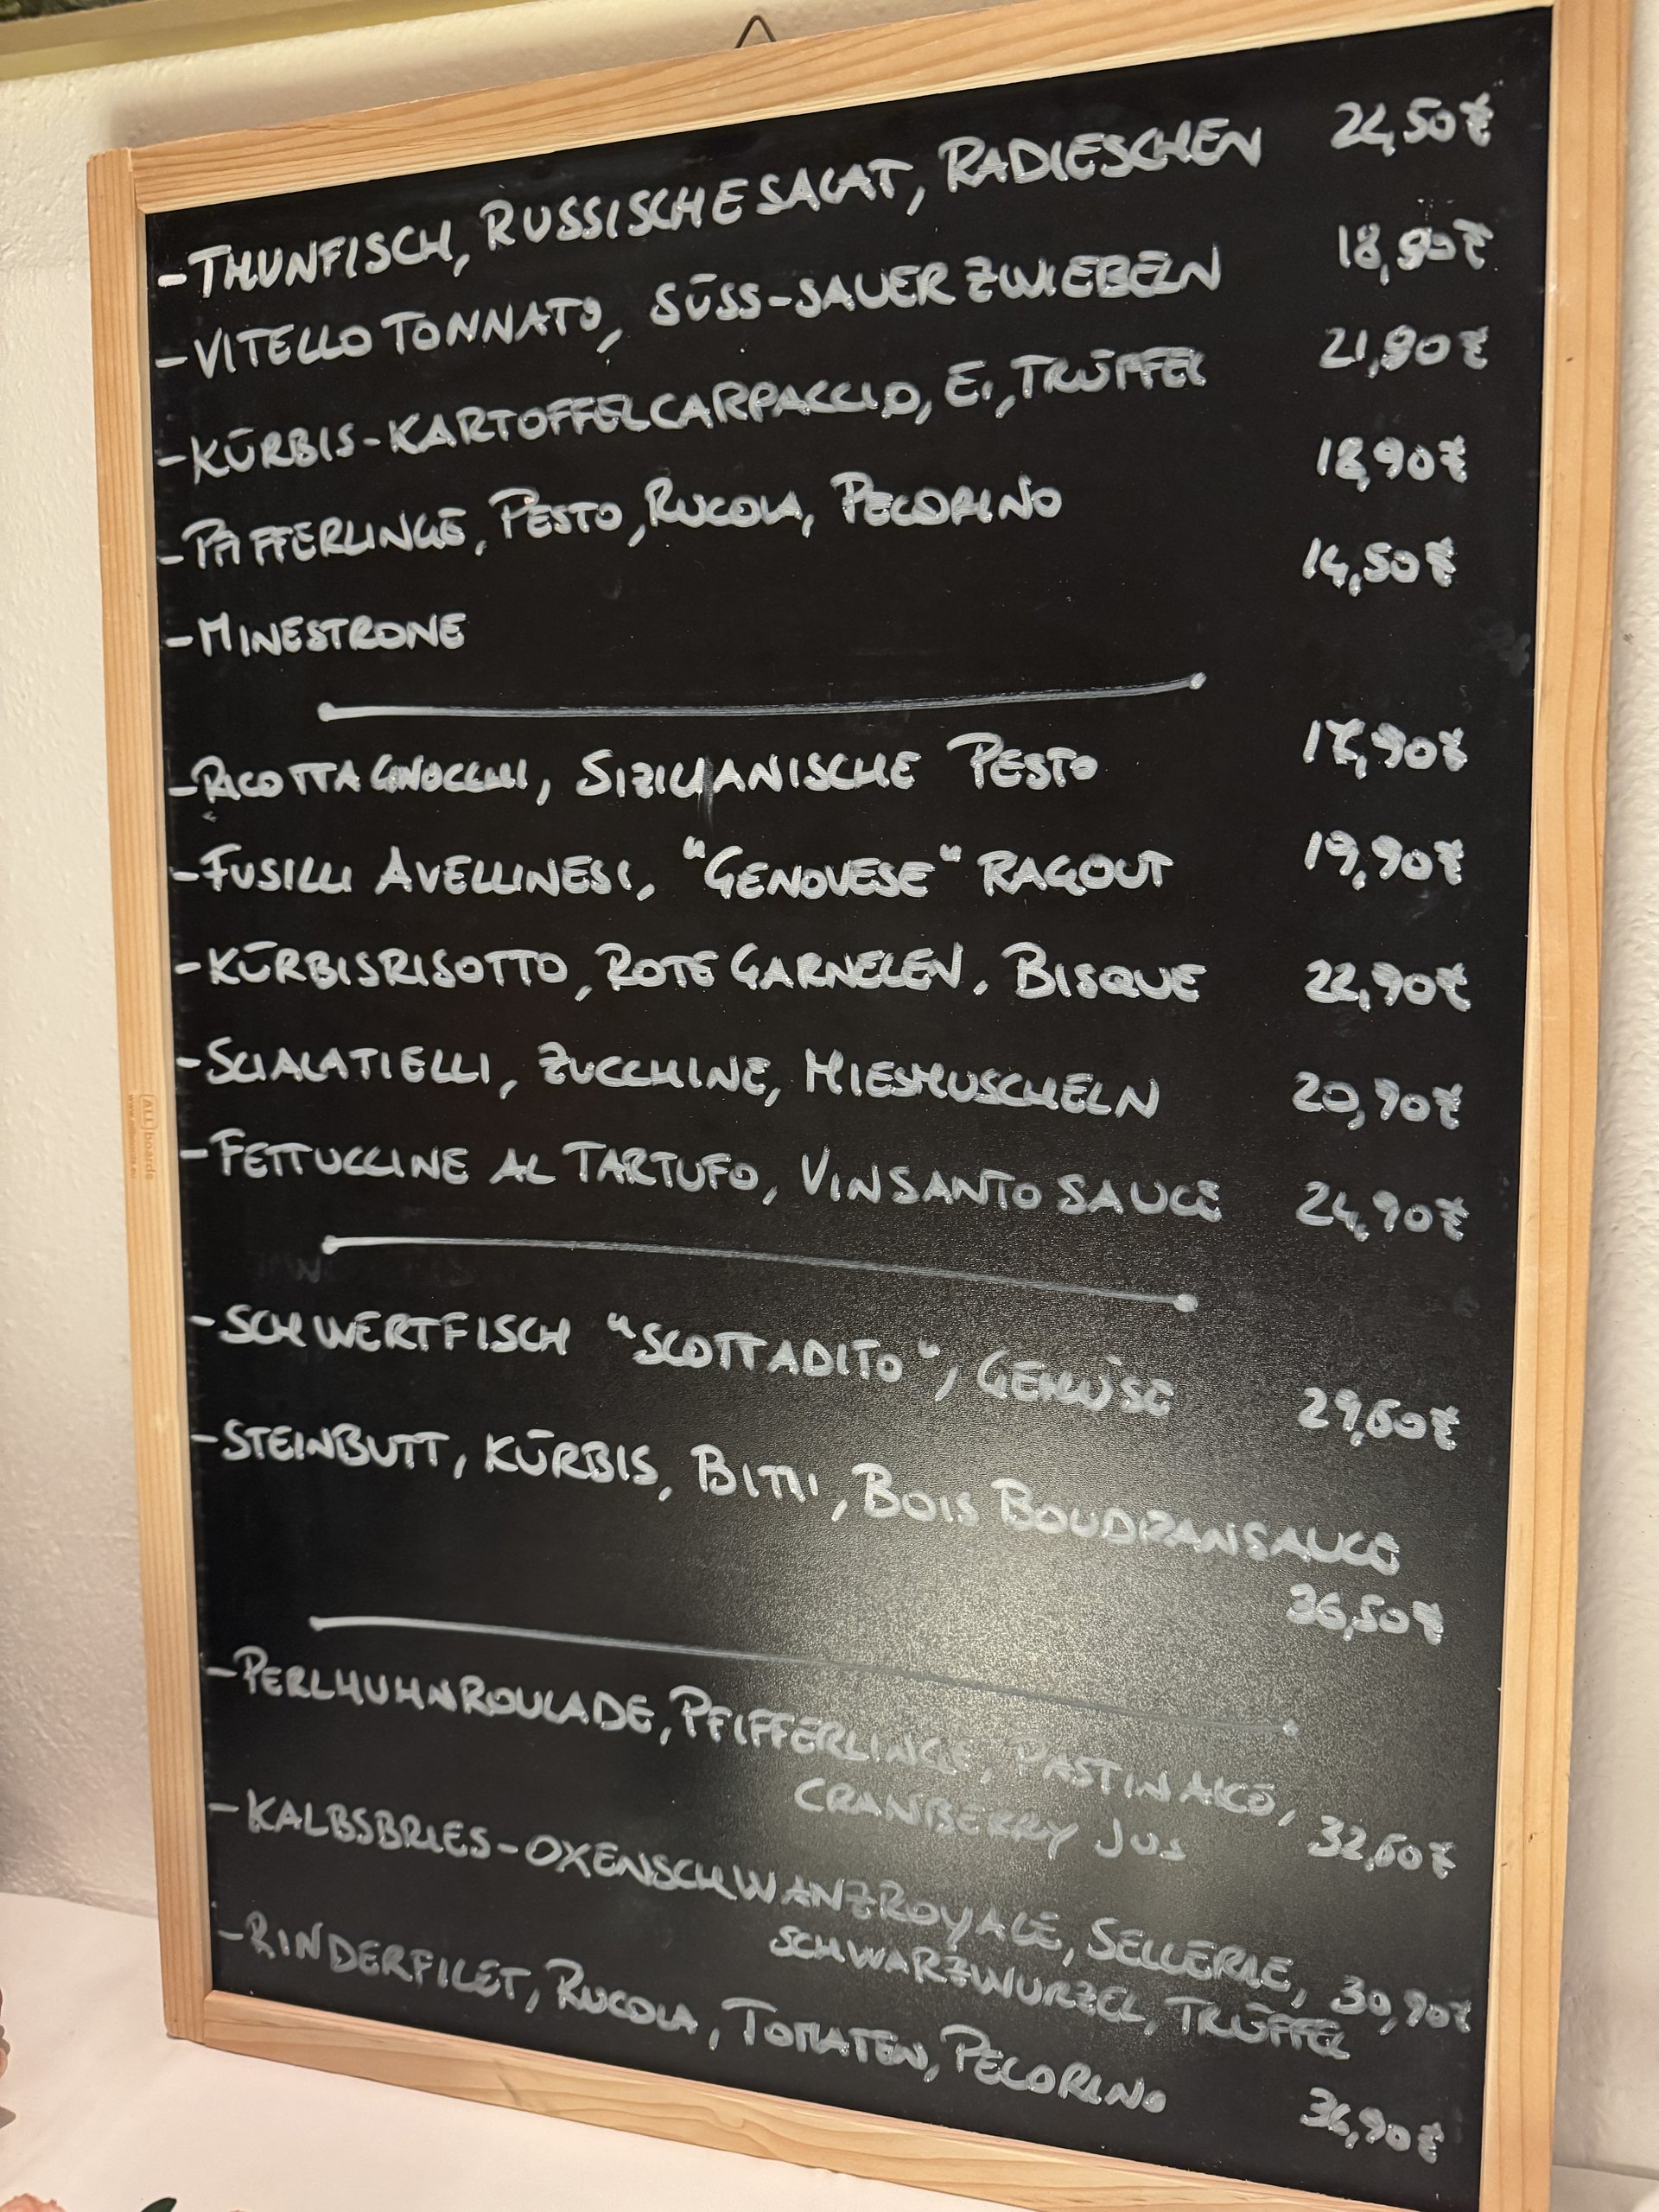 - THUNFISCH, RUSSISCHE SALAT, RADIESCHEN 22,50€
- VITELLO TONNATO, SÜSS-SAUER ZWIEBELN 18,90€
- KÜRBIS-KARTOFFELCARPACCIO, EI, TRÜFFEL 21,90€
- PFIFFERLINGE, PESTO, RUCOLA, PECORINO 18,90€
- MINESTRONE 14,50€
- RICOTTA GNOCCHI, SIZILIANISCHE PESTO 17,90€
- FUSILLI AVELLINESI, "GENOVESE" RAGOUT 19,90€
- KÜRBISRISOTTO, ROTE GARNELEN, BISQUE 22,90€
- SCIALATIELLI, ZUCCHINE, MIESMUSCHELN 20,90€
- FETTUCCINE AL TARTUFO, VINSANTO SAUCE 24,90€
- SCHWERTFISCH "SCOTTADITO", GEMÜSE 29,60€
- STEINBUTT, KÜRBIS, BIMI, BOIS BOUDRANSAUCE
36,50€
- PERLHUHNROULADE, PFIFFERLINGE, PASTINAKE,
CRANBERRY JUS 32,60€
- KALBSBRIES-OXENSCHWANZROYALE, SELLERIE, 30,90€
SCHWARZWURZEL, TRÜFFEL
- RINDERFILET, RUCOLA, TOMATEN, PECORINO
36,90€
ALLboards